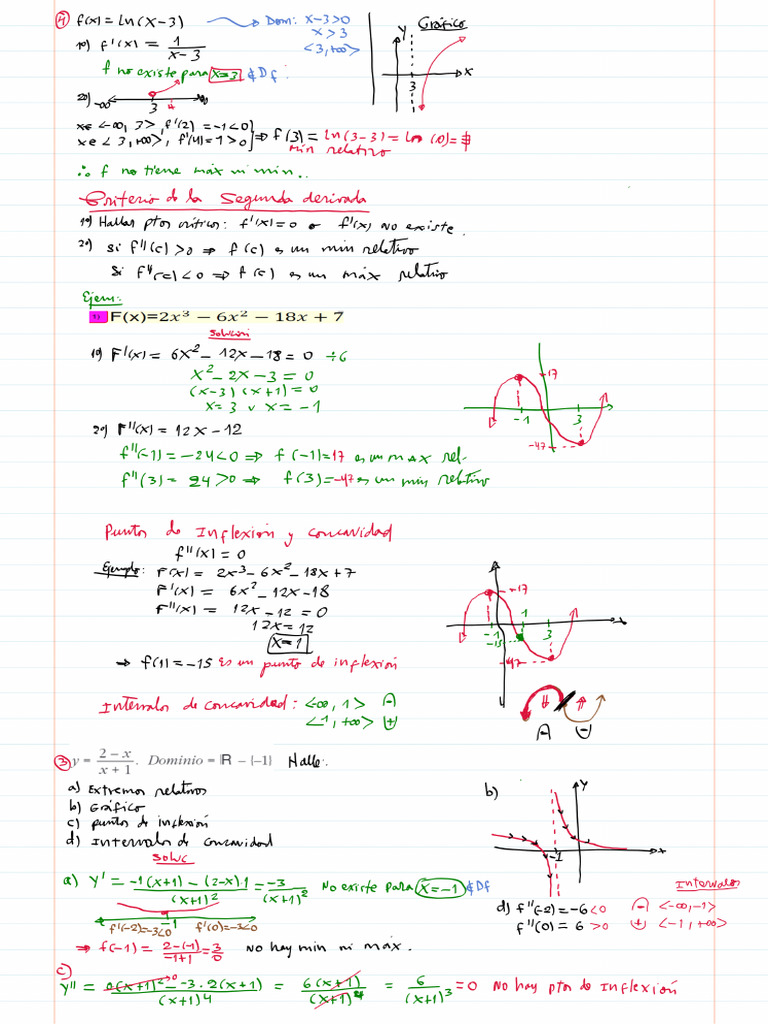 4) f(x) = Ln(x-3) Dom: x-3>0
x>3
<3,+∞>
Gráfico
Y
X
3
1º) f'(x) = 1/(x-3)
f no existe para x=3 ∉ Df
2º) -∞ 3 4
x∈ <-∞, 3>, f'(2) = -1<0
x∈ <3, +∞>, f'(4)=1>0 ⇒ f(3) = Ln(3-3) = Ln(0) = ∄
min relativo
∴ f no tiene máx ni min..
Criterio de la Segunda derivada
1º) Hallar ptos críticos: f'(x)=0 o f'(x) no existe.
2º) Si f''(c)>0 ⇒ f(c) es un min relativo
Si f''(c)<0 ⇒ f(c) es un máx relativo
Ejem:
1) F(x)=2x³ − 6x² − 18x + 7
Solución
1º) F'(x) = 6x² - 12x - 18 = 0 ÷6
x² - 2x - 3 = 0
(x-3)(x+1) = 0
x = 3 v x = -1
2º) F''(x) = 12x - 12
f''(-1) = -24<0 ⇒ f(-1)=17 es un max rel.
f''(3) = 24 >0 ⇒ f(3)=-47 es un min relativo
17
-1 3
-47
Puntos de Inflexión y concavidad
f''(x) = 0
Ejemplo: F(x) = 2x³ - 6x² - 18x + 7
F'(x) = 6x² - 12x - 18
F''(x) = 12x - 12 = 0
12x = 12
x = 1
⇒ f(1) = -15 es un punto de inflexión
17
1
-1 3
-15
-47
x
Intervalos de concavidad: <-∞, 1>
<1, +∞>
3) y = (2 − x)/(x + 1). Dominio = R − {−1} Halle:.
a) Extremos relativos
b) Gráfico
c) puntos de inflexión
d) Intervalos de concavidad
Soluc
b) Y
-1 x
a) Y' = (-1(x+1) - (2-x)·1)/(x+1)² = -3/(x+1)² No existe para x=-1 ∉ Df
-1
f'(-2)=-3<0 f'(0)=-3<0
⇒ f(-1) = (2-(-1))/(-1+1) = 3/0 No hay min ni máx.
Intervalos
d) f''(-2) = -6<0 <-∞,-1>
f''(0) = 6 >0 <-1, +∞>
c)
Y'' = (0(x+1)² - -3·2(x+1))/(x+1)⁴ = 6(x+1)/(x+1)⁴ = 6/(x+1)³ = 0 No hay ptos de Inflexión